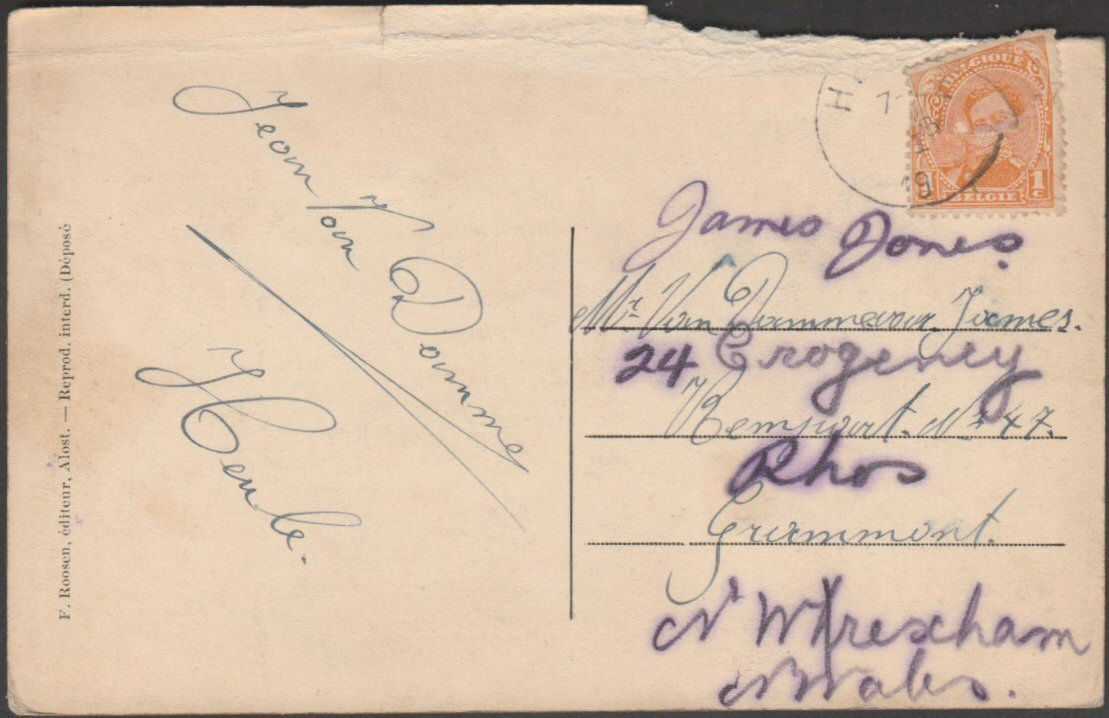 F. Roosen, éditeur, Alost. — Reprod. interd. (Déposé
Jean Van Damme
Heule.
H
7-
19
BELGIQUE
1 C
BELGIE
James Jones.
Mr. Van Damme James.
24 Crogeney
Rempart. No 47.
Rhos
Grammont.
Nr Wrexham
N Wales.